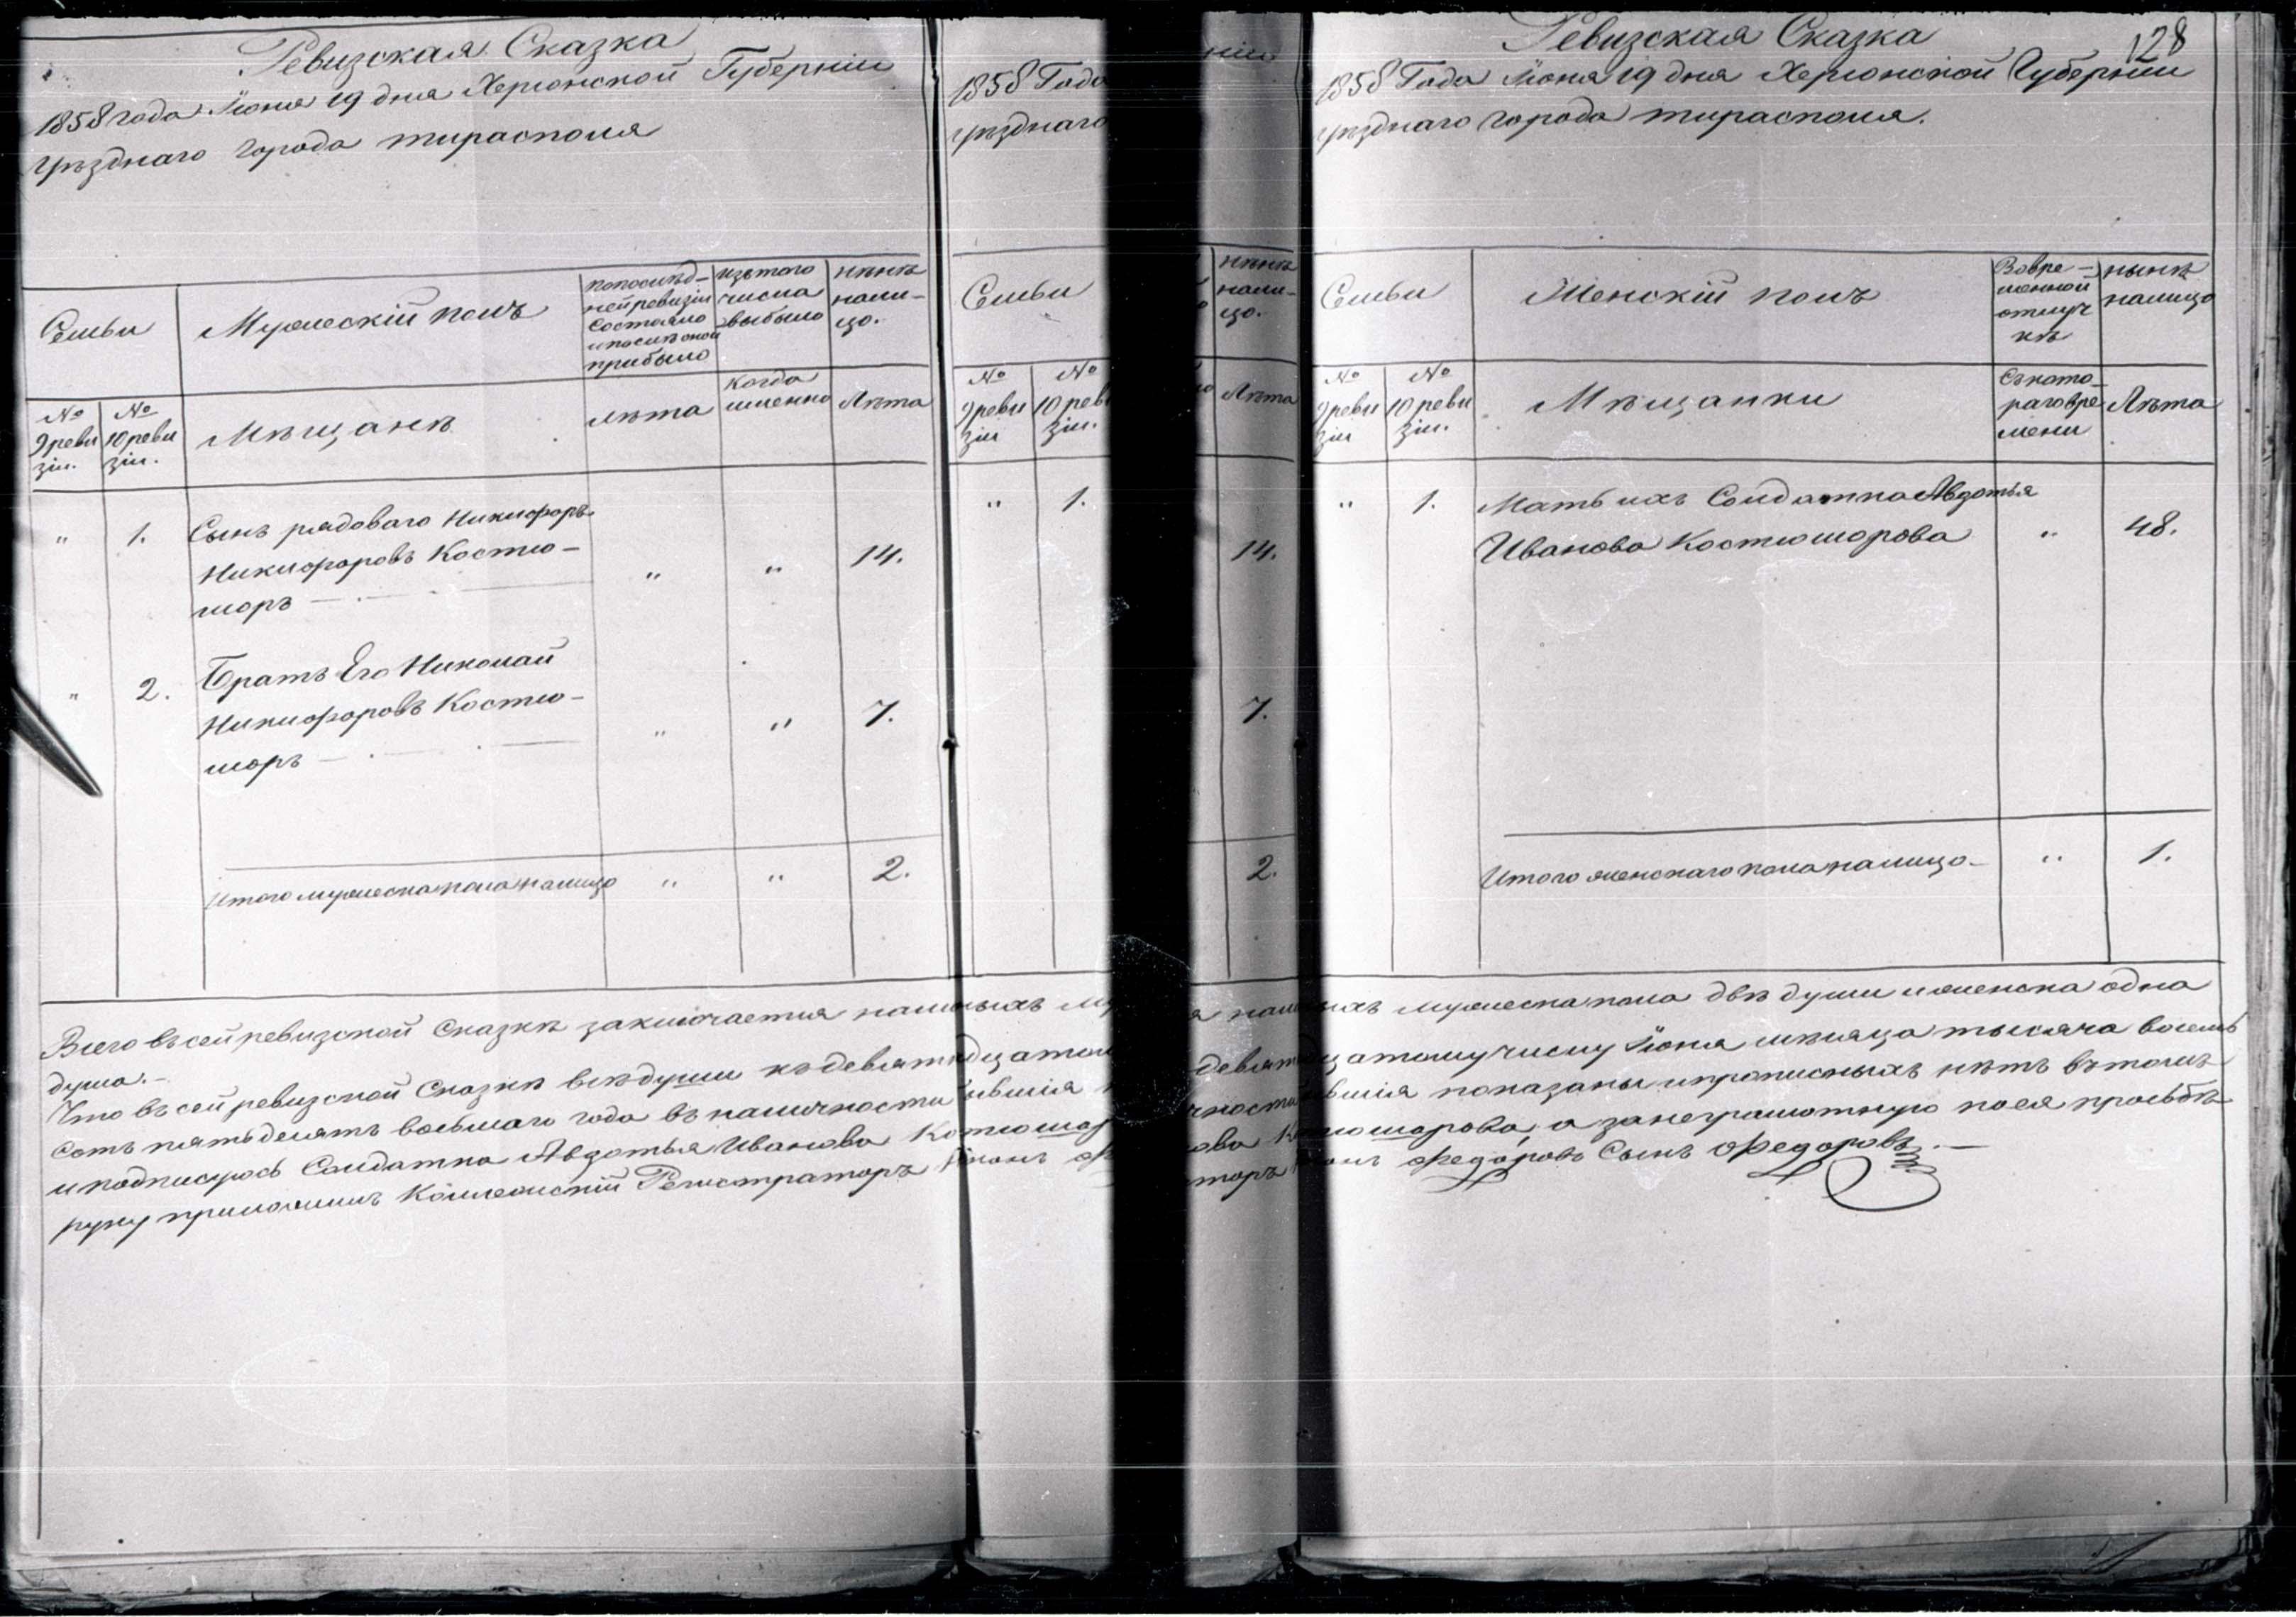 Ревизская Сказка
1858 года Июня 19 дня Херсонской Губернiи
уѣзднаго города тирасполя
Семьи
Мужескiй полъ
попослѣд-
нейревизiи
состояло
ипослѣоной
прибыло
изътого
числа
выбыло
нынѣ
нали-
цо.
№
9реви
зiи.
№
10реви
зiи.
Мѣщанѣ
лѣта
когда
именно
Лѣта
" 1. Сынъ рядоваго Никифоръ
Никифоровъ Костю-
шоръ — " " 14.
" 2. Братъ Его Николай
Никифоровъ Костю-
шоръ — " " 7.
Итого мужеска пола налицо " " 2.
1858 Года
уѣзднаго
Семьи
№
9реви
зiи
№
10реви
зiи.
" 1.
нiи
нынѣ
нали-
цо.
Лѣта
14.
7.
2.
128
Ревизская Сказка
1858 Года Июня 19 дня Херсонской Губернiи
уѣзднаго города тирасполя.
Семьи
Женскiй полъ
Вовре-
менной
отлуч
кѣ
нынѣ
налицо
№
9реви
зiи
№
10реви
зiи.
Мѣщанки
Съкото-
раговре
мени
Лѣта
" 1. Мать ихъ Солдатка Авдотья
Иванова Костюшорова " 48.
Итого женскаго пола налицо- " 1.
Всего въ сей ревизской Сказкѣ заключается наличныхъ мужеска пола двѣ души и женска одна
душа.-
Что въ сей ревизской Сказкѣ всѣ души къ девятнадцатому числу Июня мѣсяца тысяча восемь
сотъ пятьдесятъ восьмаго года въ наличности бывшiя показаны и прописныхъ нѣтъ въ томъ
и подписуюсь Солдатка Авдотья Иванова Костюшорова, а за неграмотную по ея просьбѣ
руку приложилъ Коллежскiй Регистраторъ Федоровъ Сынъ Федоровъ.-